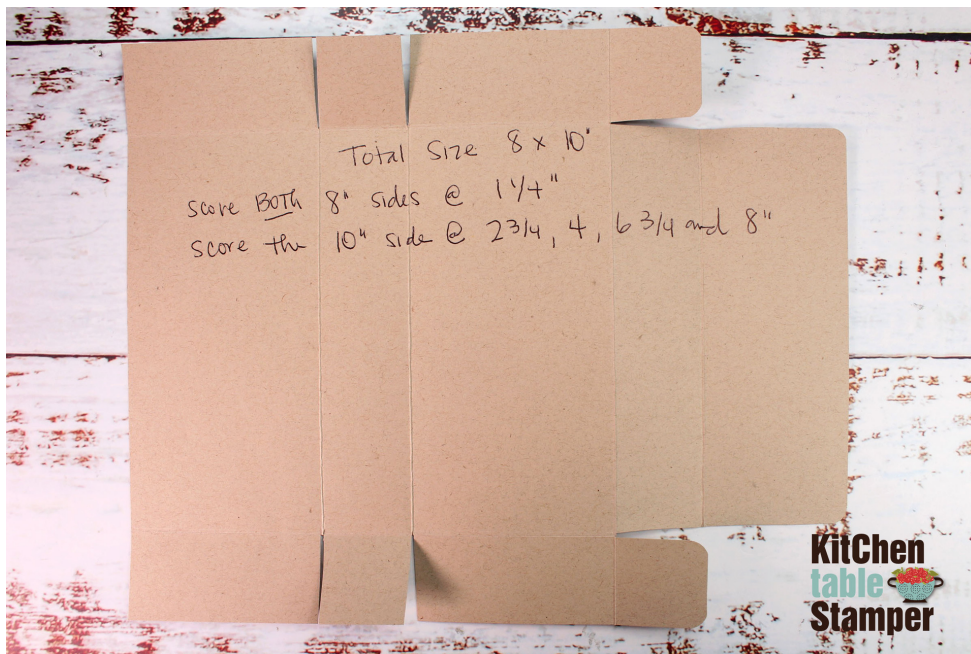 Total Size 8 x 10"
Score BOTH 8" sides @ 1 1/4"
Score the 10" side @ 2 3/4, 4, 6 3/4 and 8"
KitChen
table
Stamper